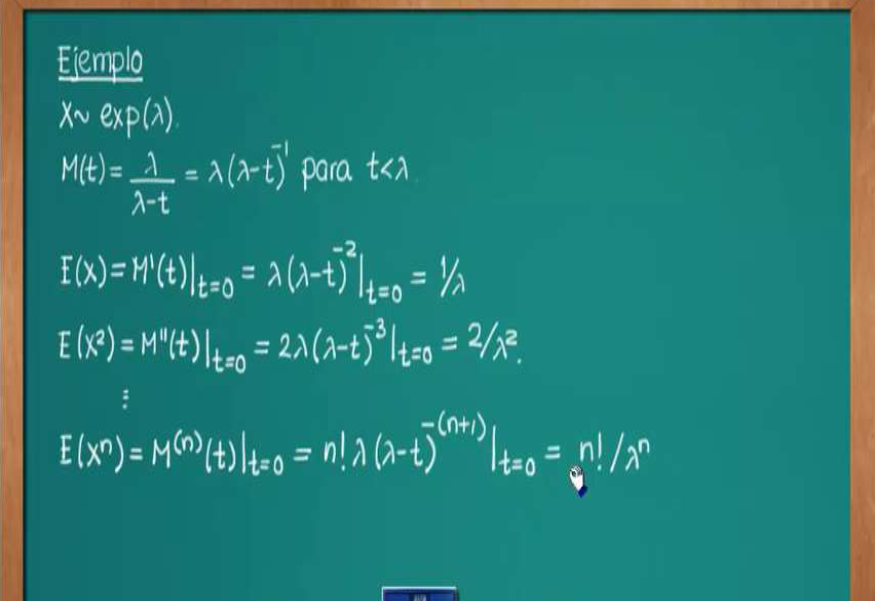 Ejemplo
X~ exp(λ).
M(t) = λ/(λ-t) = λ(λ-t)⁻¹ para t<λ.
E(X) = M'(t)|t=0 = λ(λ-t)⁻²|t=0 = 1/λ
E(X²) = M''(t)|t=0 = 2λ(λ-t)⁻³|t=0 = 2/λ².
⋮
E(Xⁿ) = M⁽ⁿ⁾(t)|t=0 = n! λ(λ-t)⁻⁽ⁿ⁺¹⁾|t=0 = n!/λⁿ